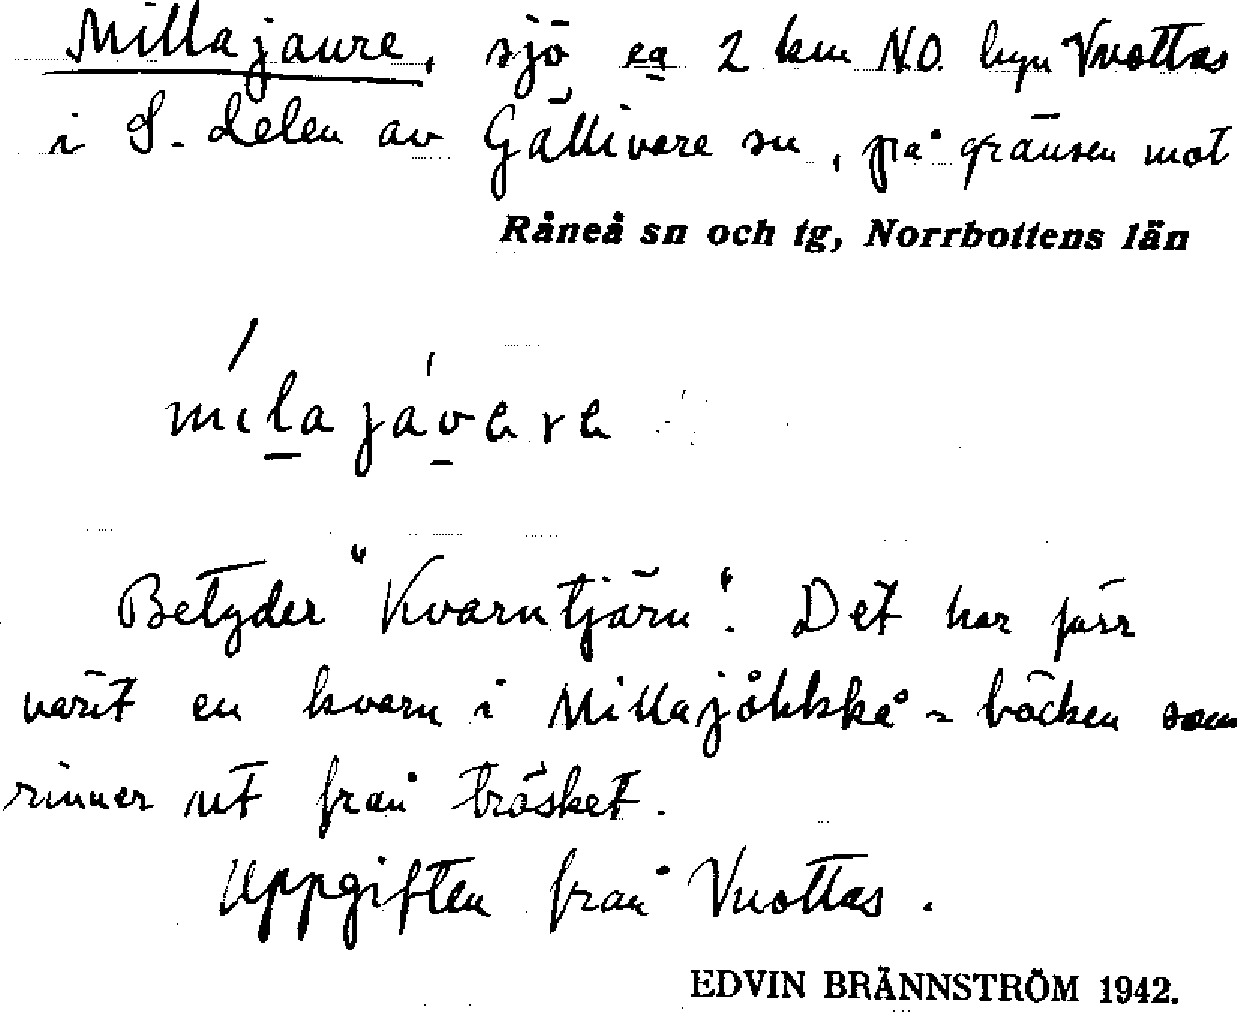 Millajaure, sjö ca 2 km N.O. byn Vuottas
i S. delen av Gällivare sn, på gränsen mot
Råneå sn och tg, Norrbottens län
Betyder "Kvarntjärn". Det har förr
varit en kvarn i Millajåhkkå - bäcken som
rinner ut från träsket.
Uppgiften från Vuottas.
EDVIN BRÄNNSTRÖM 1942.